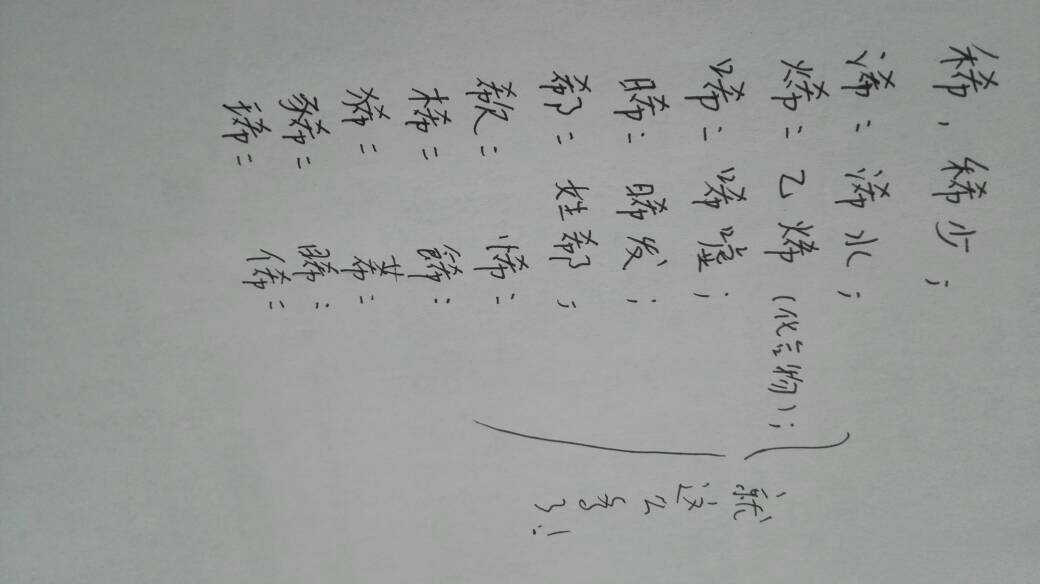 稀，稀少；
浠：浠水；
烯：乙烯（化合物）；
唏：唏嘘；
晞：晞发；
郗：姓郗；
欷： 悕：
桸： 餏：
狶： 莃：
豨： 睎：
俙：
就这么多了！